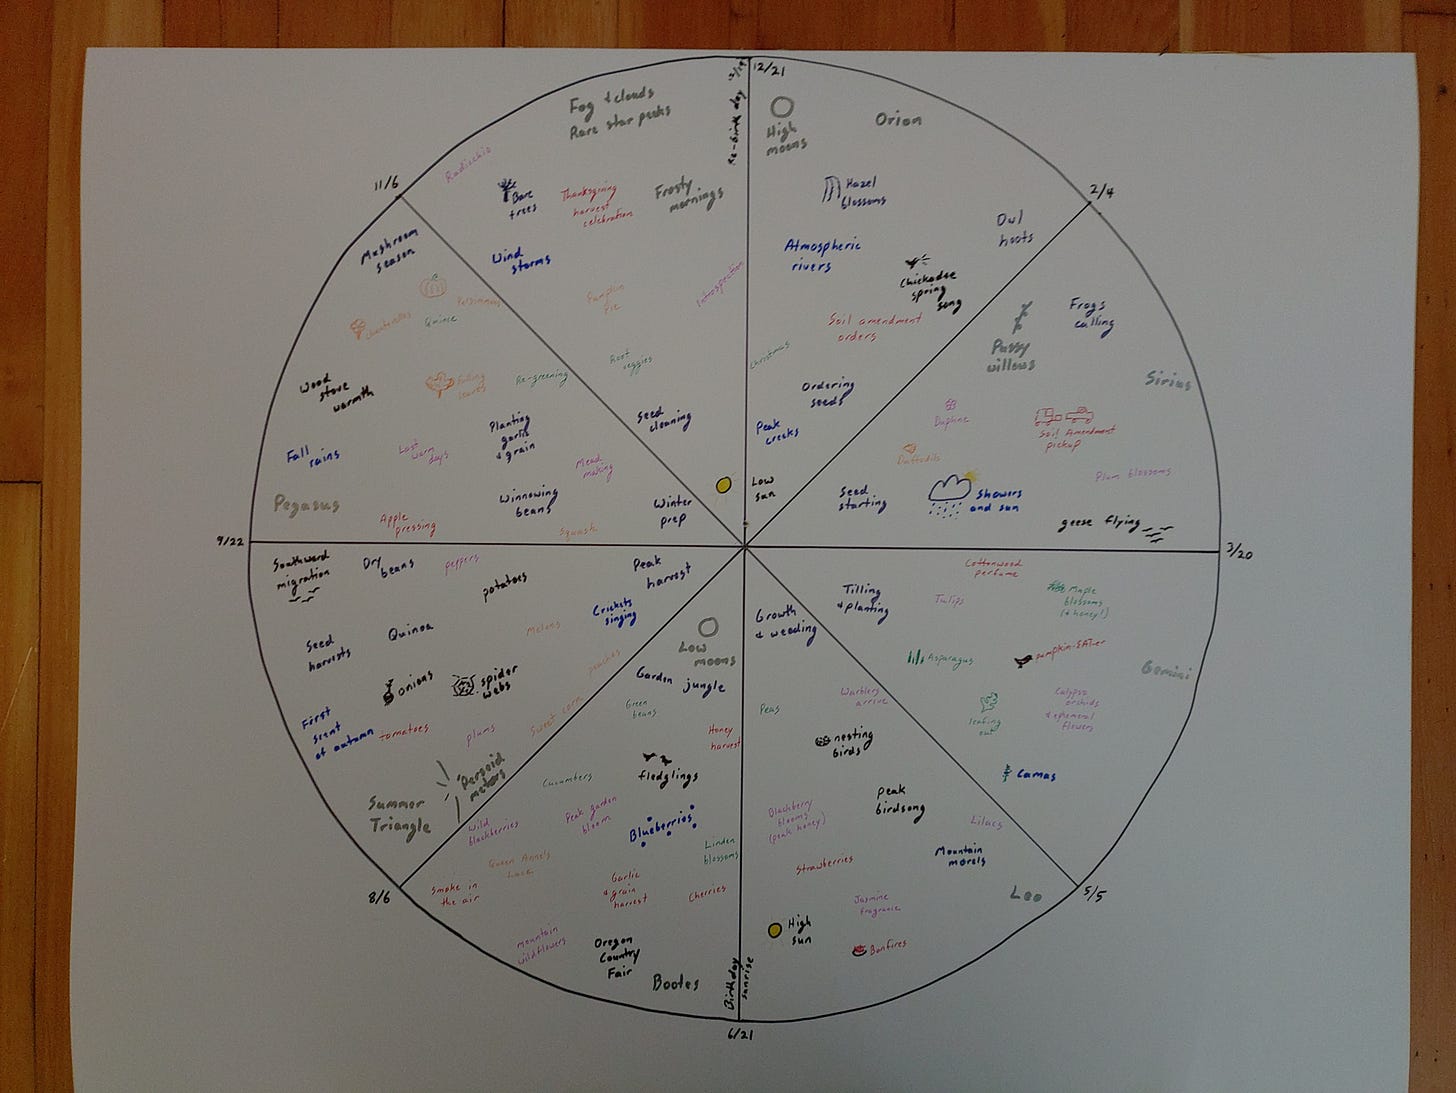 12/21
Re-birth day 12/19
High
moons
Orion
Hazel
blossoms
Atmospheric
rivers
Chickadee
spring
song
Soil amendment
orders
Christmas
Ordering
seeds
Peak
creeks
Low
sun
2/4
Owl
hoots
Frogs
calling
Pussy
willows
Sirius
Daphne
Soil Amendment
pickup
Daffodils
Plum blossoms
Seed
starting
Showers
and sun
geese flying
3/20
Cottonwood
perfume
Tulips
Maple
blossoms
(+ honey!)
Tilling
+ planting
Growth
& weeding
Asparagus
Pumpkin-EATer
Gemini
Calypso
orchids
+ ephemeral
flowers
leafing
out
Camas
Warblers
arrive
Peas
nesting
birds
Peak
birdsong
Lilacs
Blackberry
blooms
(peak honey)
Mountain
morels
Strawberries
5/5
Leo
Jasmine
fragrance
High
sun
Bonfires
Birthday
sunrise
6/21
Low
moons
Garden jungle
Green
beans
Honey
harvest
fledglings
Cucumbers
Peak garden
bloom
Blueberries
Wild
blackberries
Linden
blossoms
Queen Anne's
Lace
Smoke in
the air
Garlic
+ grain
harvest
Cherries
mountain
wildflowers
Oregon
Country
Fair
Bootes
8/6
Peak
harvest
Crickets
singing
Southward
migration
Dry
beans
peppers
potatoes
Melons
peaches
Sweet corn
Seed
harvests
Quinoa
onions
spider
webs
First
scent
of autumn
tomatoes
plums
Perseid
meteors
Summer
Triangle
9/22
Mushroom
season
Persimmons
Chanterelles
Quince
Wood
stove
warmth
Falling
leaves
Re-greening
Planting
garlic
+ grain
Fall
rains
Last
warm
days
Mead
making
Winnowing
beans
Winter
prep
Pegasus
Apple
pressing
Squash
11/6
Fog + clouds
Rare star peeks
Radicchio
Bare
trees
Thanksgiving
harvest
celebration
Frosty
mornings
Wind
storms
Pumpkin
Pie
Introspection
Root
veggies
Seed
cleaning